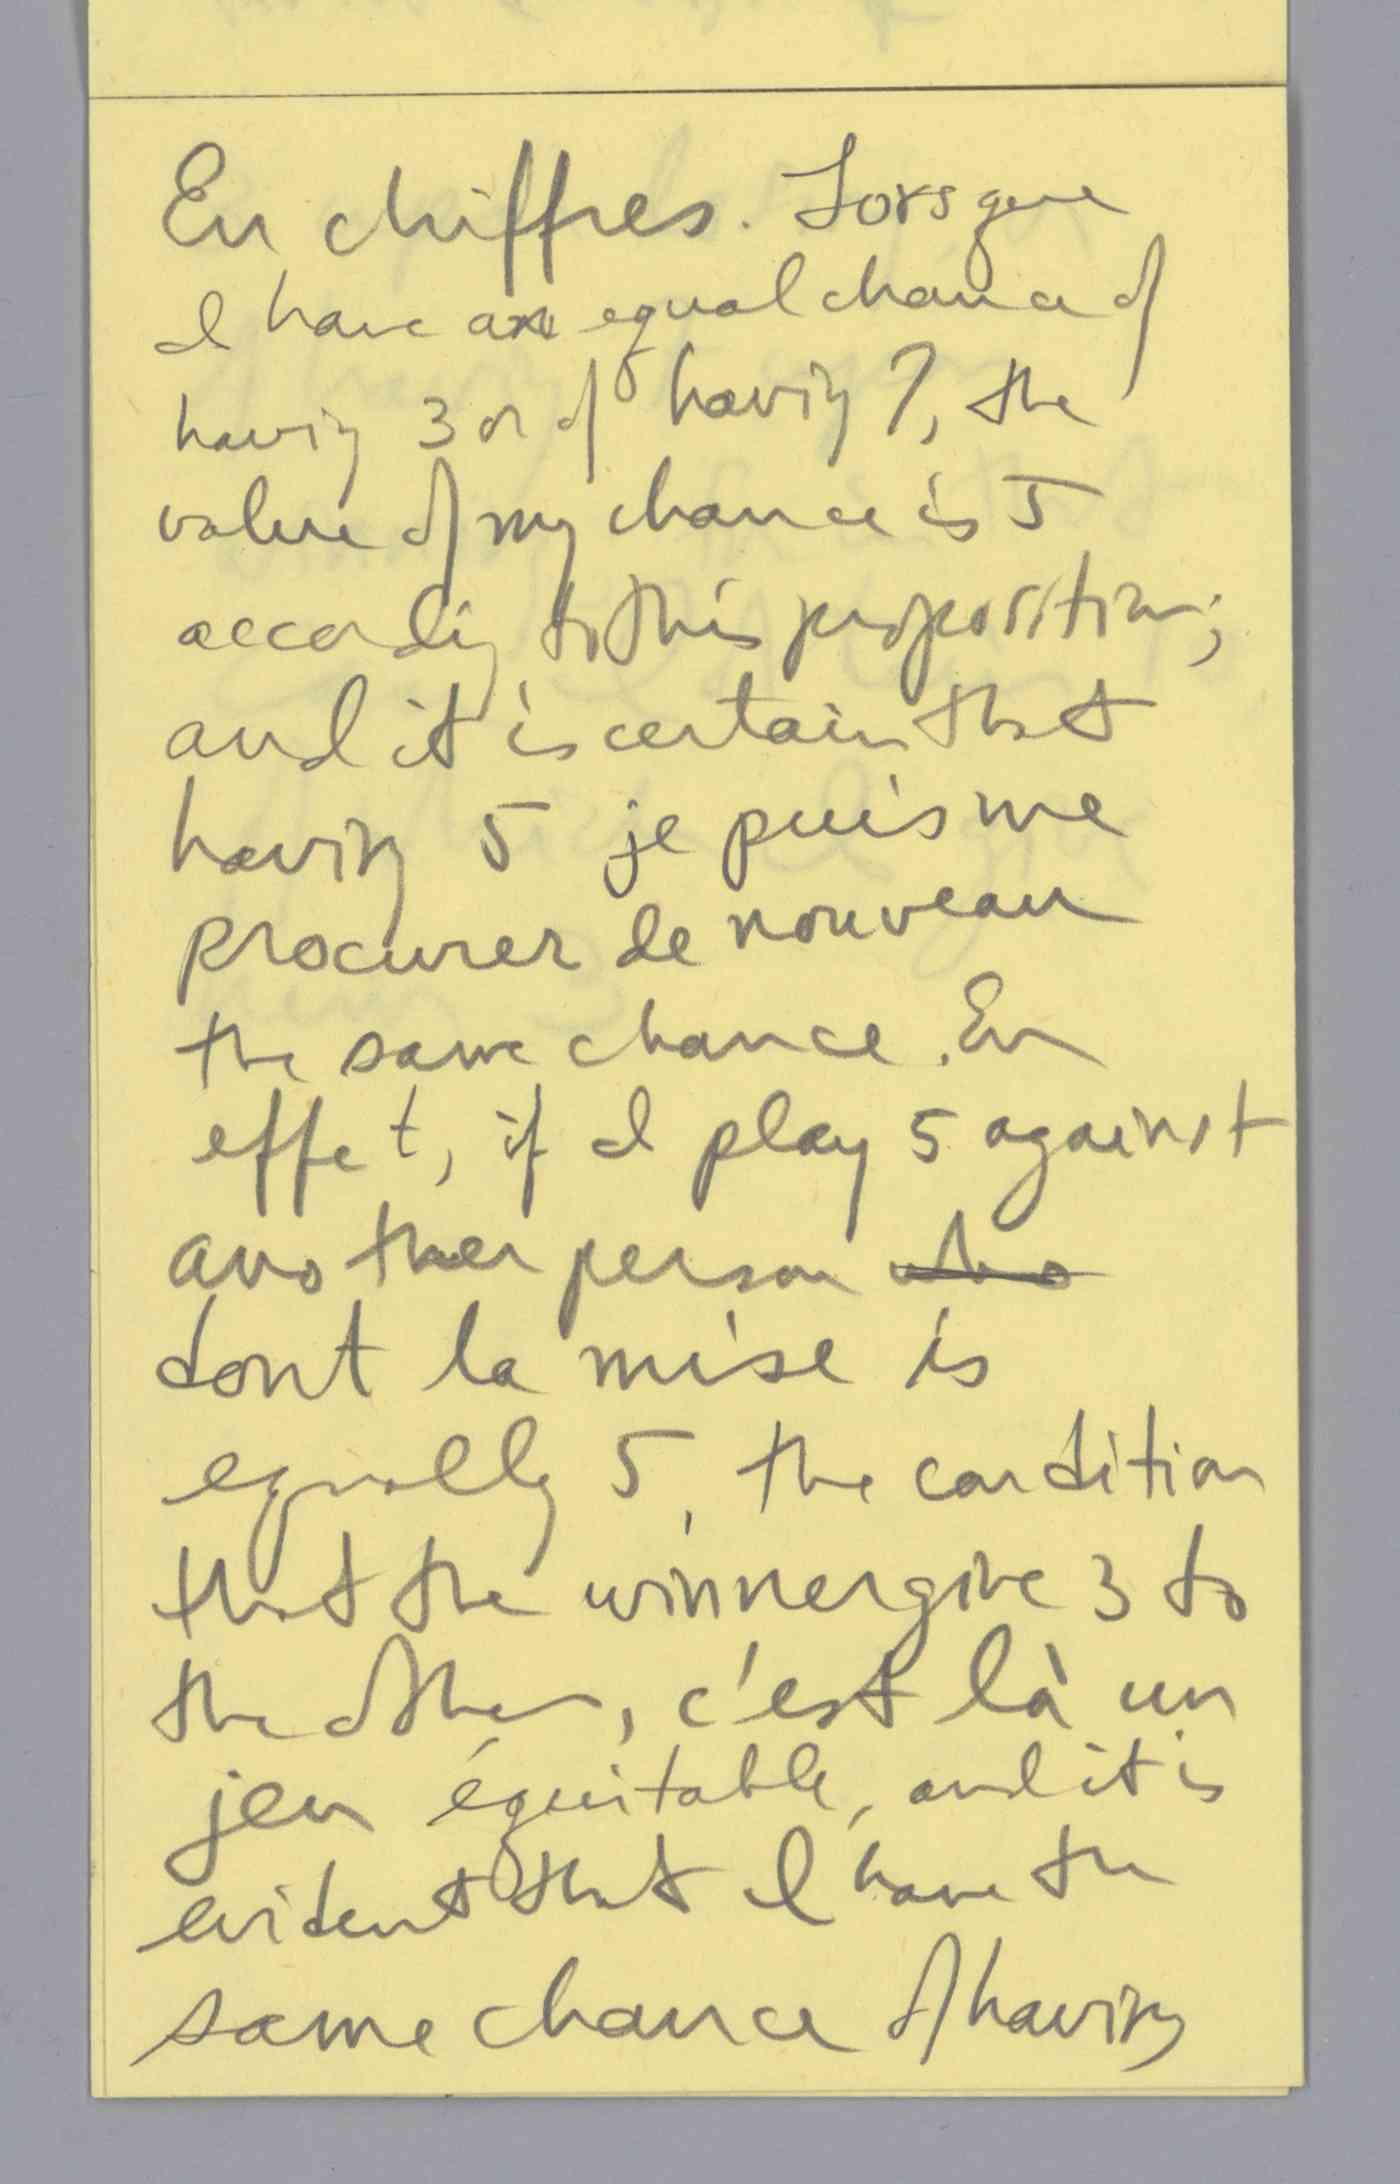 En chiffres. Lorsque
I have an equal chance of
having 3 or of having 7, the
value of my chance is 5
according to this proposition;
and it is certain that
having 5 je puis me
procurer de nouveau
the same chance. En
effet, if I play 5 against
another person who
dont la mise is
equally 5, the condition
that the winner give 3 to
the other, c'est là un
jeu équitable, and it is
evident that I have the
same chance of having